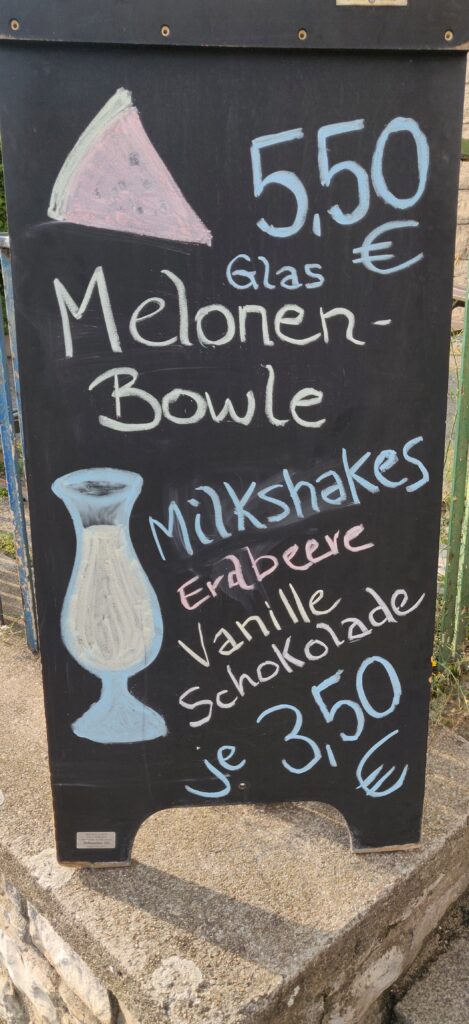 5,50
€
Glas
Melonen-
Bowle
Milkshakes
Erdbeere
Vanille
Schokolade
je 3,50
€